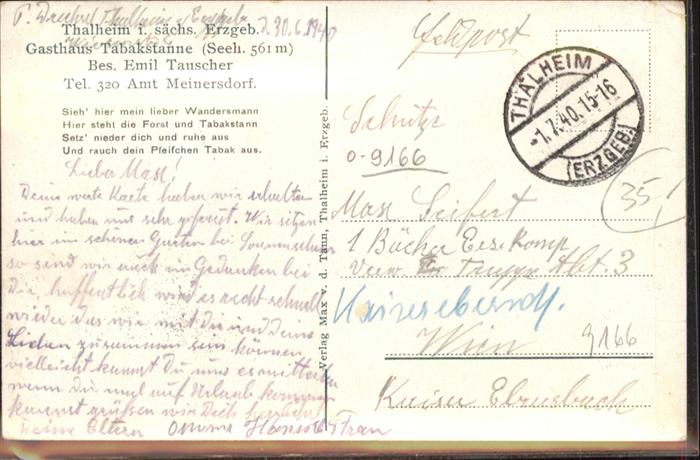 Thalheim i. sächs. Erzgeb.
Gasthaus Tabakstanne (Seeh. 561 m)
Bes. Emil Tauscher
Tel. 320 Amt Meinersdorf.
Sieh' hier mein lieber Wandersmann
Hier steht die Forst und Tabakstann
Setz' nieder dich und ruhe aus
Und rauch dein Pfeifchen Tabak aus.
Lieber Max!
Deine werte Karte haben wir erhalten
und haben uns sehr gefreut. Wir sitzen
hier im schönen Garten bei Sonnenschein
so sind wir auch in Gedanken bei
Dir, hoffentlich wird es recht schnell
wieder das wir mit Dir und Deine
Lieben zusammen sein können
vielleicht kannst Du und es mitteilen
wenn Du mal auf Urlaub kommen
kannst grüßen wir Dich herzlich
Deine Eltern Omama
Frau
Verlag Max v. d. Tann, Thalheim i. Erzgeb.
Feldpost
THALHEIM
-1.7.40.15-16
(ERZGEB.)
Schütze
0-9166
35,
Max Seifert
1 Bäcker Ers. Komp
Verw. Truppe Abt. 3
Kaiserebersdf.
Wien
9166
Kaiser Ebersbach